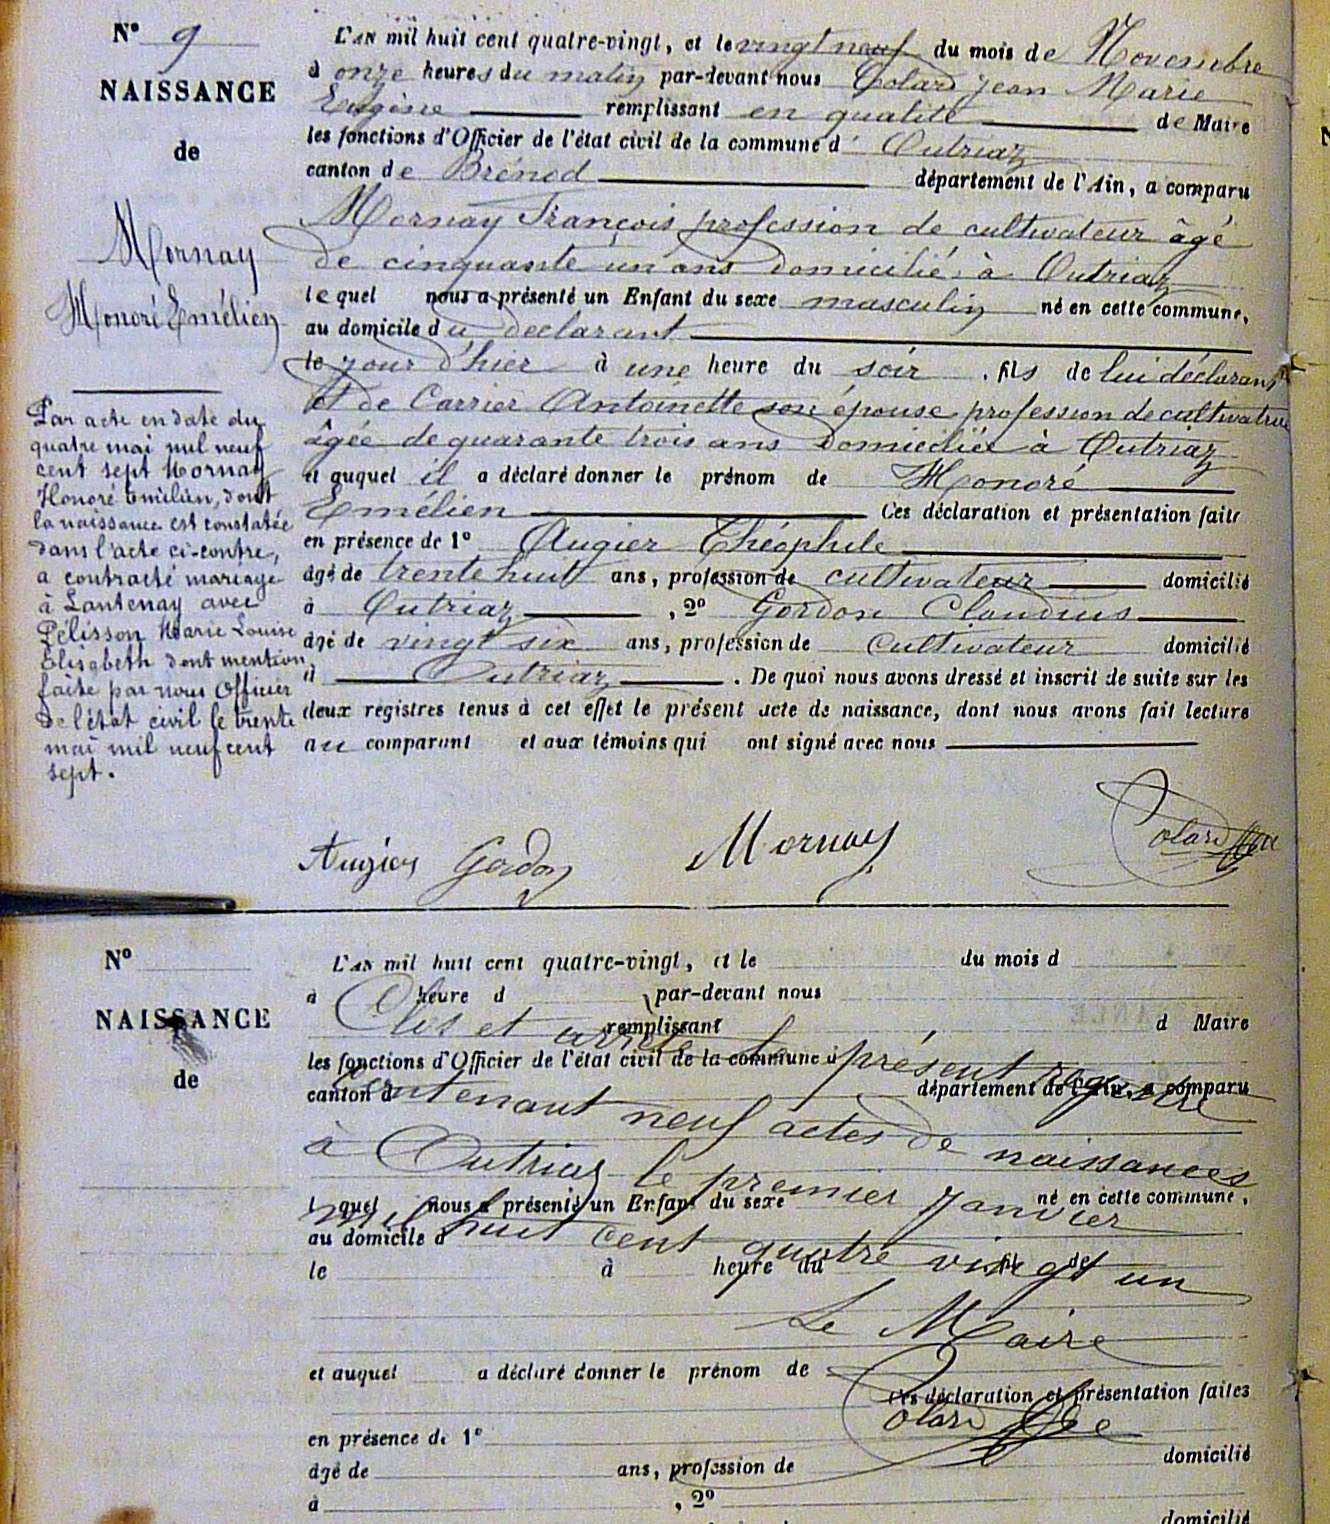 N° 9
NAISSANCE
de
Mornay
Honoré Emélien
Par acte en date du
quatre mai mil neuf
cent sept Mornay
Honoré Emilien, dont
la naissance est constatée
dans l'acte ci-contre,
a contracté mariage
à Lantenay avec
Pélisson Marie Louise
Elisabeth dont mention
faite par nous Officier
de l'état civil le trente
mai mil neuf cent
sept.
L'AN mil huit cent quatre-vingt, et le vingt neuf du mois de Novembre
à onze heures du matin par-devant nous Colard Jean Marie
Eugène remplissant en qualité de Maire
les fonctions d'Officier de l'état civil de la commune d' Outriaz
canton de Brénod département de l'Ain, a comparu
Mornay François profession de cultivateur âgé
de cinquante un ans domicilié à Outriaz
lequel nous a présenté un Enfant du sexe masculin né en cette commune,
au domicile du déclarant
le jour d'hier à une heure du soir, fils de lui déclarant
et de Carrier Antoinette son épouse profession de cultivatrice
âgée de quarante trois ans domiciliée à Outriaz
et auquel il a déclaré donner le prénom de Honoré
Emélien Ces déclaration et présentation faite
en présence de 1° Augier Théophile
âgé de trente huit ans, profession de cultivateur domicilié
à Outriaz, 2° Gordon Claudius
âgé de vingt six ans, profession de cultivateur domicilié
à Outriaz. De quoi nous avons dressé et inscrit de suite sur les
deux registres tenus à cet effet le présent acte de naissance, dont nous avons fait lecture
au comparant et aux témoins qui ont signé avec nous
Augier Gordon Mornay Colard
N°
NAISSANCE
de
L'AN mil huit cent quatre-vingt, et le du mois d
à heure d par-devant nous
Clos et arrêté le présent registre
remplissant d Maire
les fonctions d'Officier de l'état civil de la commune d
canton d département de l'Ain, a comparu
Contenant neuf actes de naissances
à Outriaz le premier Janvier
lequel nous a présenté un Enfant du sexe né en cette commune,
mil huit cent quatre vingt un
au domicile d
le à heure du fil de
Le Maire
et auquel a déclaré donner le prénom de
Ces déclaration et présentation faites
Colard
en présence de 1°
âgé de ans, profession de domicilié
à , 2°
domicilié